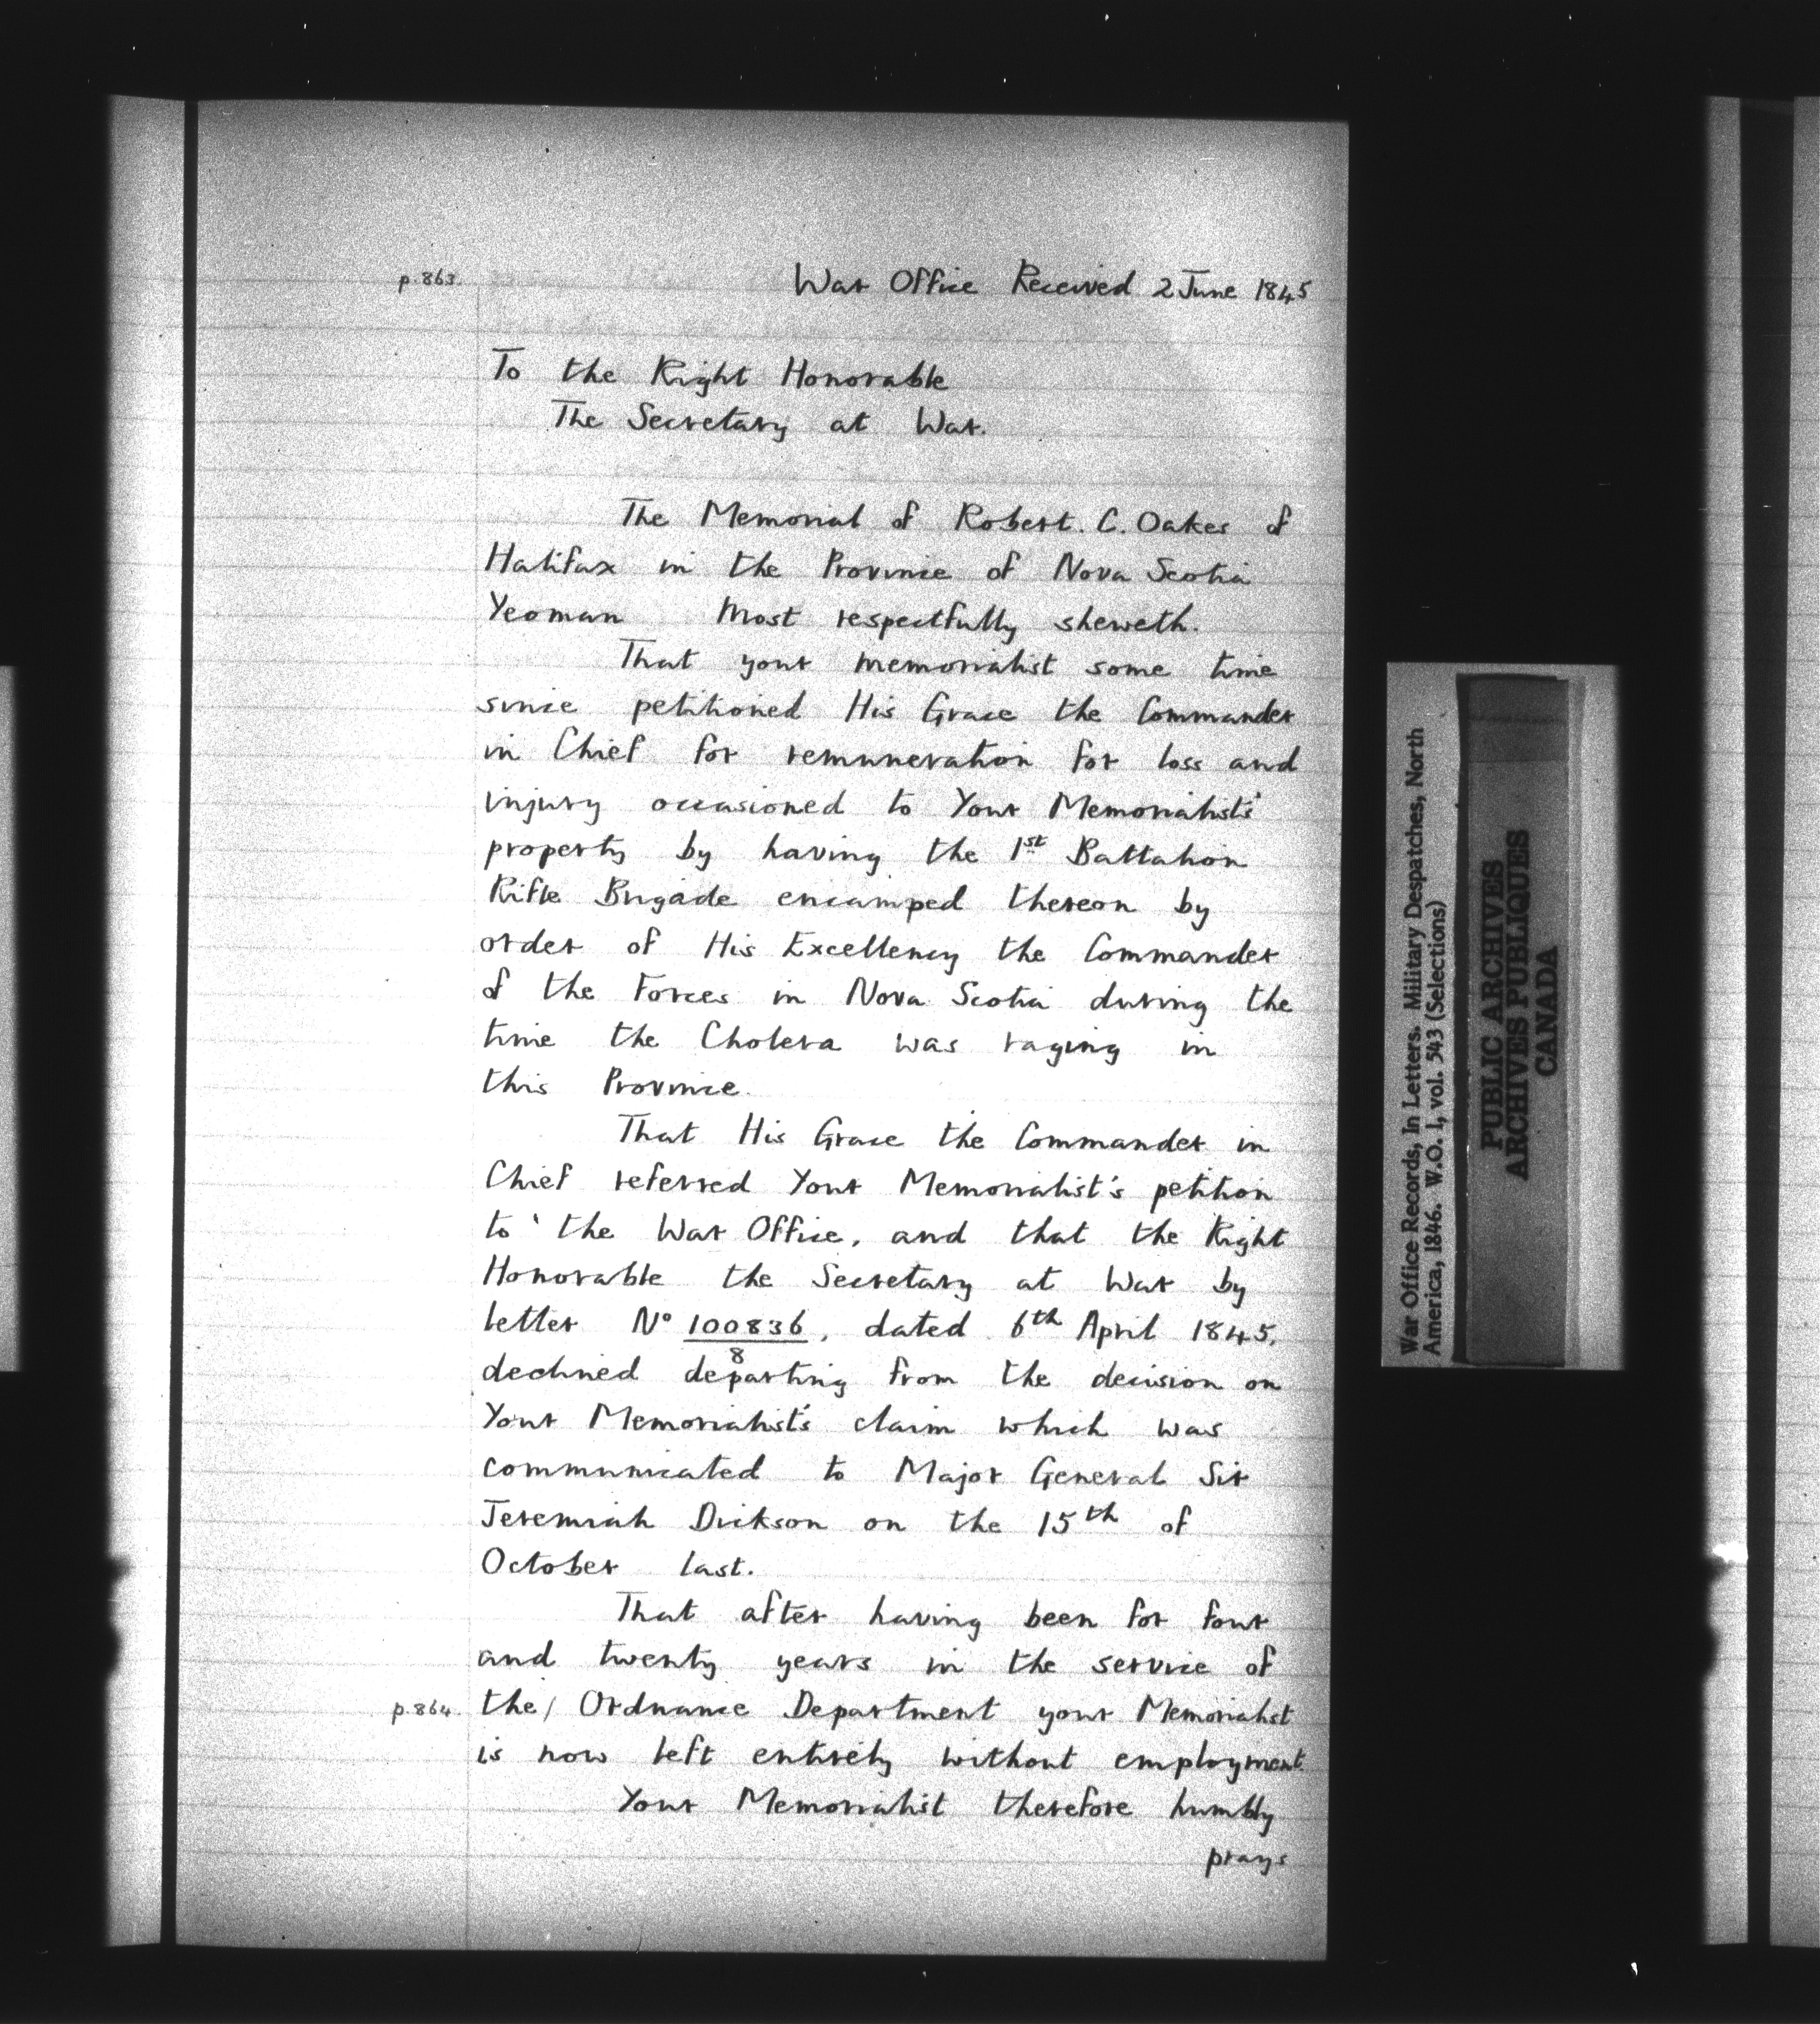 p.863.
War Office Received 2 June 1845
To the Right Honorable
The Secretary at War.
The Memorial of Robert. C. Oakes of
Halifax in the Province of Nova Scotia
Yeoman Most respectfully sheweth.
That your memorialist some time
since petitioned His Grace the Commander
in Chief for remuneration for loss and
injury occasioned to Your Memorialists'
property by having the 1st Battalion
Rifle Brigade encamped thereon by
order of His Excellency the Commander
of the Forces in Nova Scotia during the
time the Cholera was raging in
this Province.
That His Grace the Commander in
Chief referred Your Memorialist's petition
to the War Office, and that the Right
Honorable the Secretary at War by
letter No 100836, dated 6th April 1845,
8
declined departing from the decision on
Your Memorialist's claim which was
communicated to Major General Sir
Jeremiah Dickson on the 15th of
October last.
That after having been for four
and twenty years in the service of
p.864. the/ Ordnance Department your Memorialist
is now left entirely without employment.
Your Memorialist therefore humbly
prays
War Office Records, In Letters. Military Despatches, North
America, 1846. W.O. 1, vol. 543 (Selections)
PUBLIC ARCHIVES
ARCHIVES PUBLIQUES
CANADA